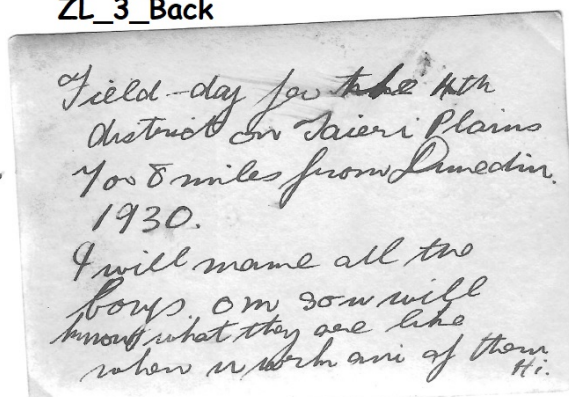 ZL_3_Back
Field-day for the 4th
district on Taieri Plains
7 or 8 miles from Dunedin.
1930.
I will name all the
boys. om so u will
know what they are like
when u work ani of them
Hi.